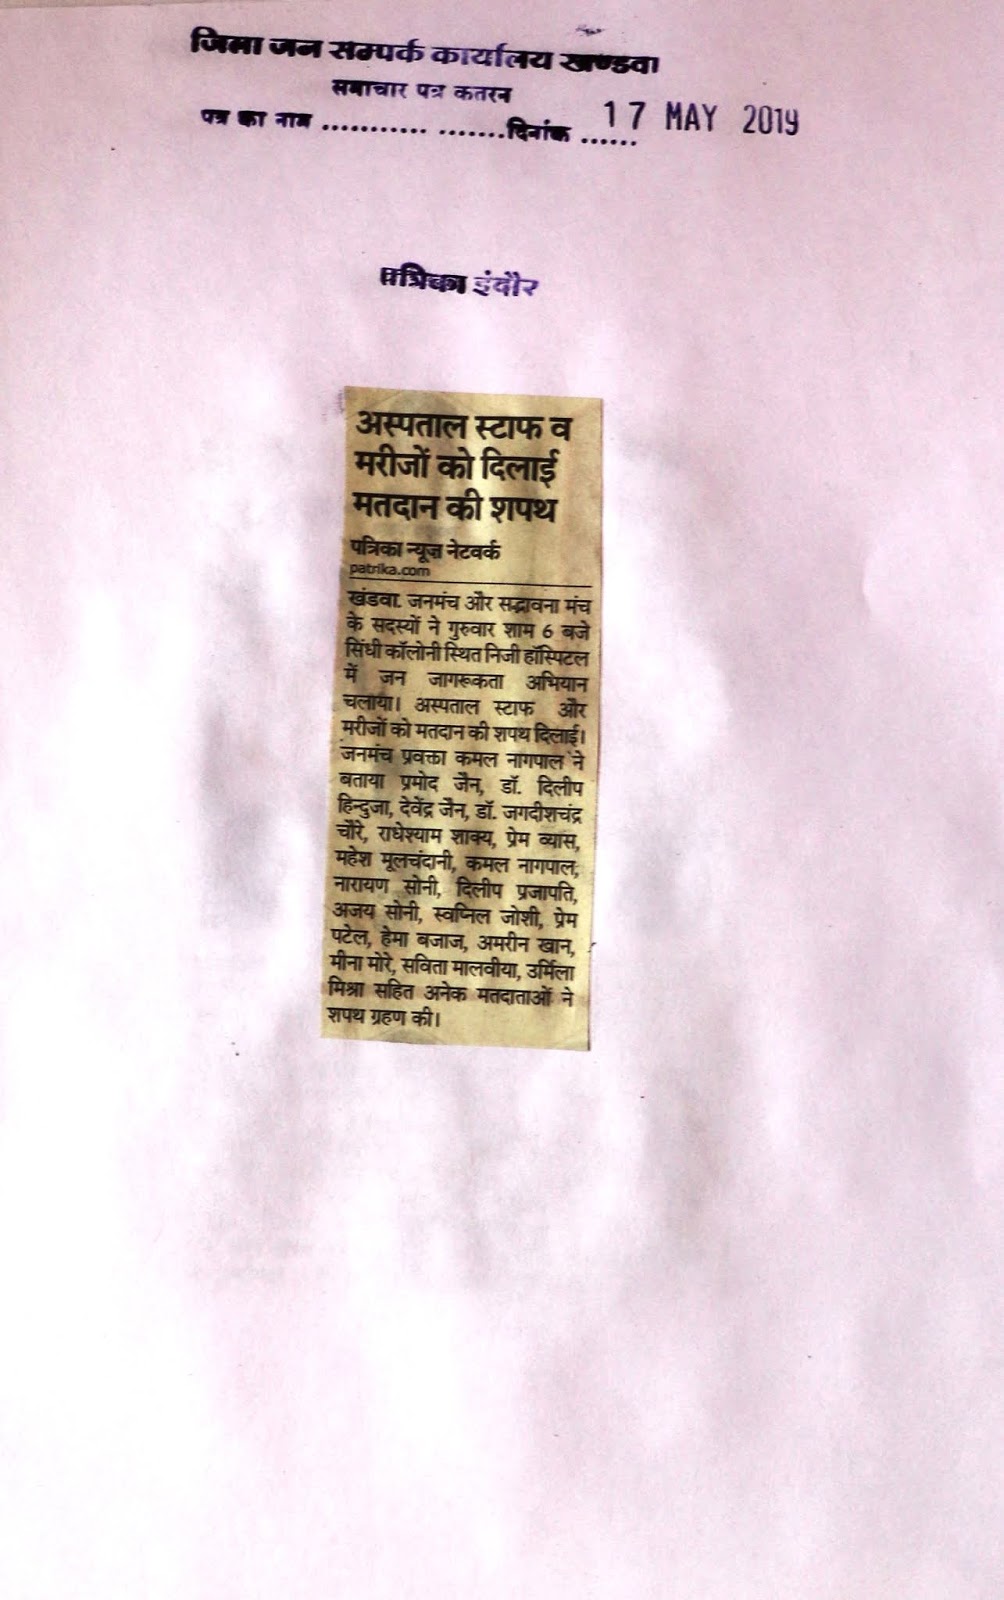 जिला जन सम्पर्क कार्यालय खण्डवा
समाचार पत्र कतरन
पत्र का नाम ........... .......दिनांक ...... 17 MAY 2019
पत्रिका इंदौर
अस्पताल स्टाफ व
मरीजों को दिलाई
मतदान की शपथ
पत्रिका न्यूज़ नेटवर्क
patrika.com
खंडवा. जनमंच और सद्भावना मंच
के सदस्यों ने गुरुवार शाम 6 बजे
सिंधी कॉलोनी स्थित निजी हॉस्पिटल
में जन जागरूकता अभियान
चलाया। अस्पताल स्टाफ और
मरीजों को मतदान की शपथ दिलाई।
जनमंच प्रवक्ता कमल नागपाल ने
बताया प्रमोद जैन, डॉ. दिलीप
हिन्दुजा, देवेंद्र जैन, डॉ. जगदीशचंद्र
चौरे, राधेश्याम शाक्य, प्रेम व्यास,
महेश मूलचंदानी, कमल नागपाल,
नारायण सोनी, दिलीप प्रजापति,
अजय सोनी, स्वप्निल जोशी, प्रेम
पटेल, हेमा बजाज, अमरीन खान,
मीना मोरे, सविता मालवीया, उर्मिला
मिश्रा सहित अनेक मतदाताओं ने
शपथ ग्रहण की।